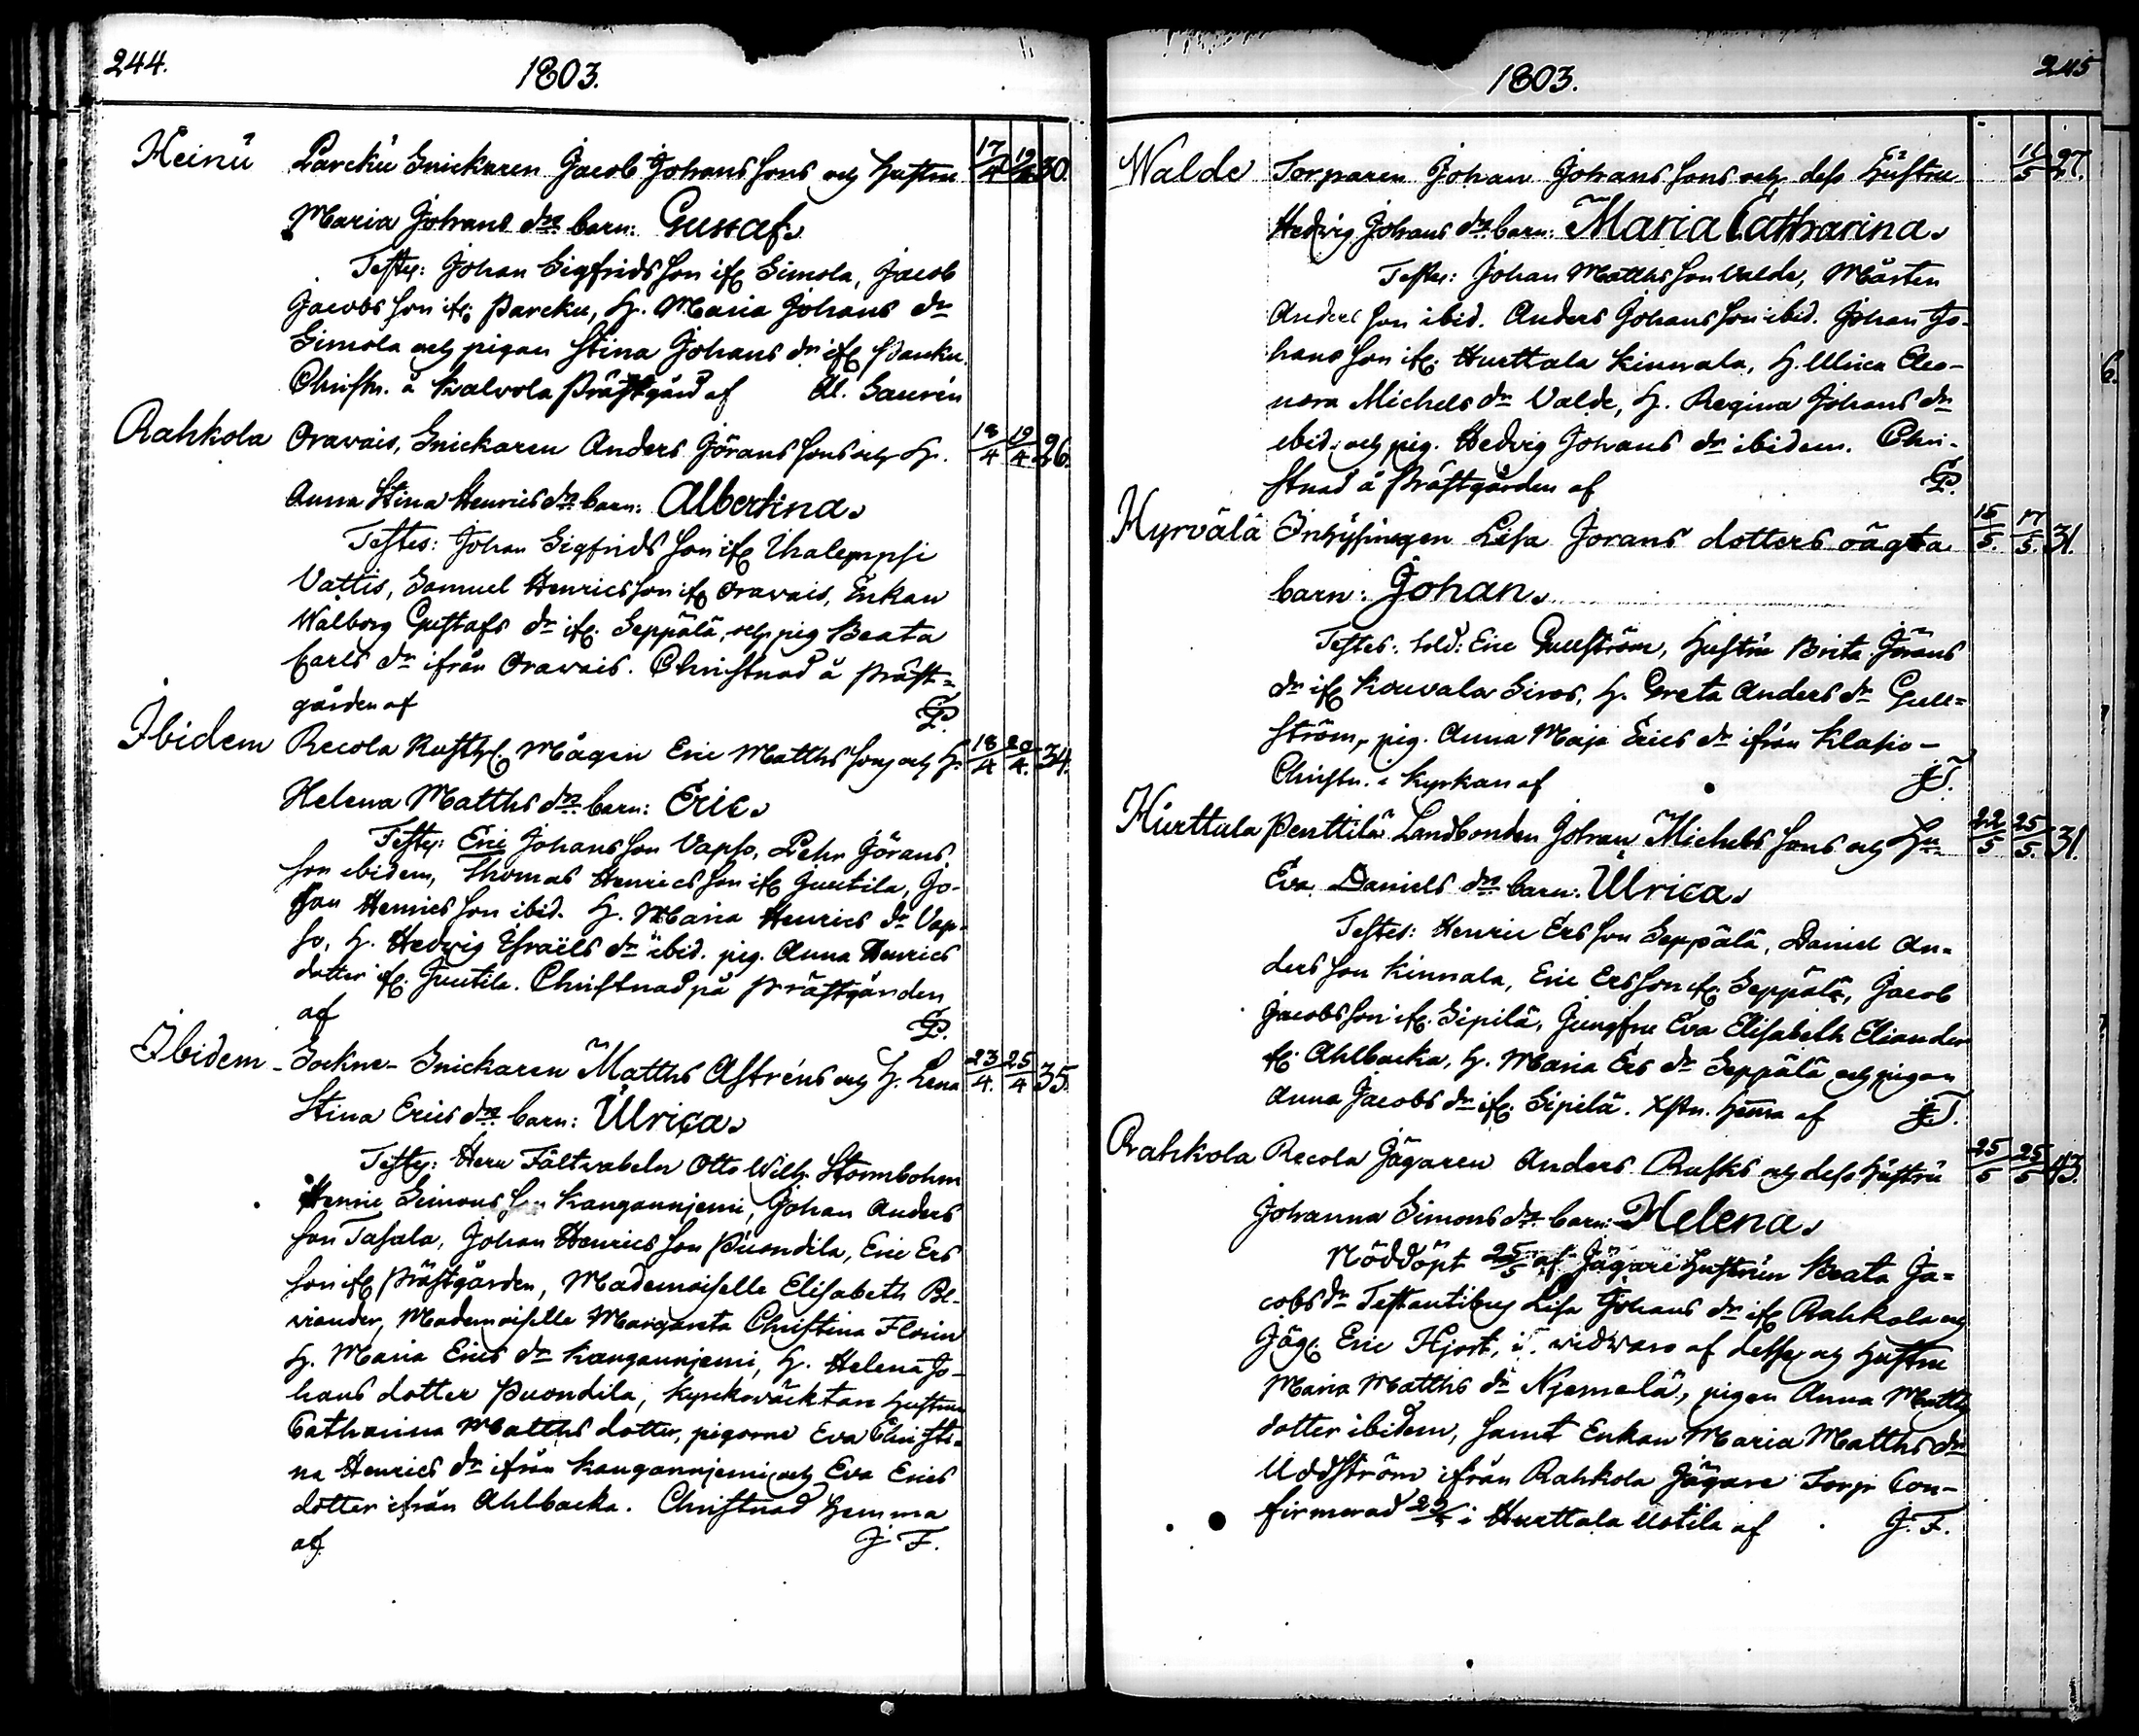 244.
1803.
Heinu Parcku Snickaren Jacob Johans sons och hustru 17/4 19/4 30.
Maria Johans dr barn: Gustaf.
Testes: Johan Sigfrids son ifr Simola, Jacob
Jacobs son ifr Parcku, H. Maria Johans dr
Simola och pigan Stina Johans dr ifr Parcku.
Christn. å Kalvola Prästgård af Al. Saurén
Rahkola Oravais, Snickaren Anders Görans sons och H. 18/4 19/4 26.
Anna Stina Henrics dr barn: Albertina.
Testes: Johan Sigfrids son ifr
Vattis, Samuel Henrics son ifr Oravais, Enkan
Walborg Gustafs dr ifr Seppälä, och pig Beata
Carls dr ifrån Oravais. Christnad å Präst=
gården af GP.
Ibidem Recola Rusth. Mågen Eric Matths sons och H. 18/4 20/4. 34.
Helena Matths dr barn: Eric.
Testes: Eric Johans son Vapso, Pehr Görans
son ibidem, Thomas Henrics son ifr Juutila, Jo-
han Henrics son ibid. H. Maria Henrics dr Vap-
so, H. Hedvig Israëls dr ibid. pig. Anna Henrics
dotter ifr Juutila. Christnad på Prästgården
af GP.
Ibidem - Sockne-Snickaren Matths Astréns och H. Lena 23/4. 25/4 35.
Stina Erics dr barn: Ulrica.
Testes: Herr Fältwäbeln Otto Wilh. Stormbohm
Henric Simons son Kangannjemi, Johan Anders
son Tasala, Johan Henrics son Puondila, Eric Ers
son ifr Prästgården, Mademoiselle Elisabeth
Mademoiselle Margareta Christina Florin
H. Maria Erics dr Kangannjemi, H. Helena Jo-
hans dotter Puondila, Kyrckowäcktare hustrun
Catharina Matths dotter, pigorne Eva Christi-
na Henrics dr ifrån Kangannjemi och Eva Erics
dotter ifrån Ahlbacka. Christnad hemma
af J. F.
1803.
245
Walde Torparen Johan Johans sons och dess Hustru 11/5 27.
Hedvig Johans dr barn: Maria Catharina.
Testes: Johan Matths son Valde, Mårten
Anders son ibid. Anders Johans son ibid. Johan Jo-
hans son ifr. Hurttala Kinnala, H. Ulrica Eleo-
nora Michels dr Valde, H. Regina Johans dr
ibid. och pig. Hedvig Johans dr ibidem. Chri-
stnad å Prästgården af GP.
Hyrvälä Inhysingen Lisa Jorans dotters oägta 15/5. 17/5. 31.
barn: Johan.
Testes: Sold: Eric Gullström, hustru Brita Jörans
dr ifr Kouvala Siros, H. Greta Anders dr Gull=
ström, pig. Anna Maja Erics dr ifrån Klasio -
Christn. i Kyrkan af
Hurttala Penttilä Landbonden Johan Michels sons och Hu 22/5 25/5. 31.
Eva Daniels dr barn: Ulrica.
Testes: Henric Ers son Seppälä, Daniel An=
ders son Kinnala, Eric Ersson ifr Seppälä, Jacob
Jacobs son ifr. Sipilä, Jungfru Eva Elisabeth Eliander
fr. Ahlbacka, H. Maria Ers dr Seppälä och pigan
Anna Jacobs dr ifr. Sipilä. Xstn. hemma af
Rahkola Recola Jägaren Anders Rasks och dess hustru 25/5 25/5 43.
Johanna Simons dr barn: Helena.
Nöddöpt 25/5 af Jägare hustrun Beata Ja=
cobs dr Testantibus Lisa Johans dr ifr Rahkola och
Jäg. Eric Hjort, i widwaro af desse och hustru
Maria Matths dr Njemelä, pigen Anna Matths
dotter ibidem, samt Enkan Maria Matths dr
Uddström ifrån Rahkola Jägare Torp Con-
firmerad i Hurttala Uotila af J. F.